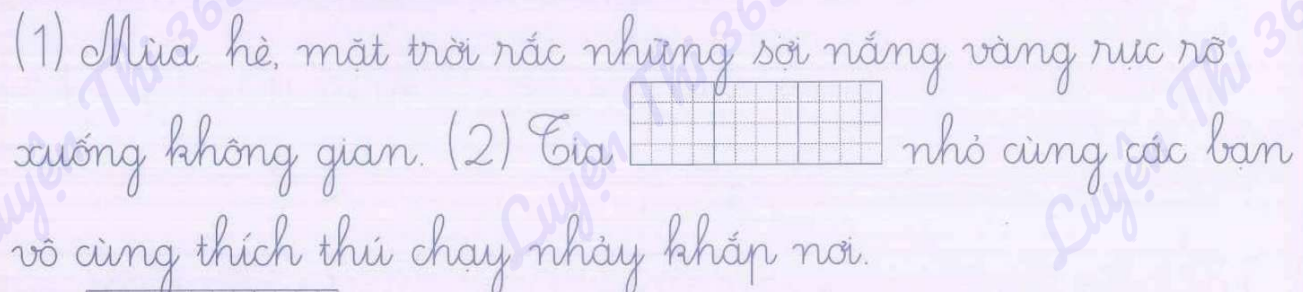 (1) Mùa hè, mặt trời rắc những sợi nắng vàng rực rỡ
xuống không gian. (2) Tia nhỏ cùng các bạn
vô cùng thích thú chạy nhảy khắp nơi.
Luyện Thi 365